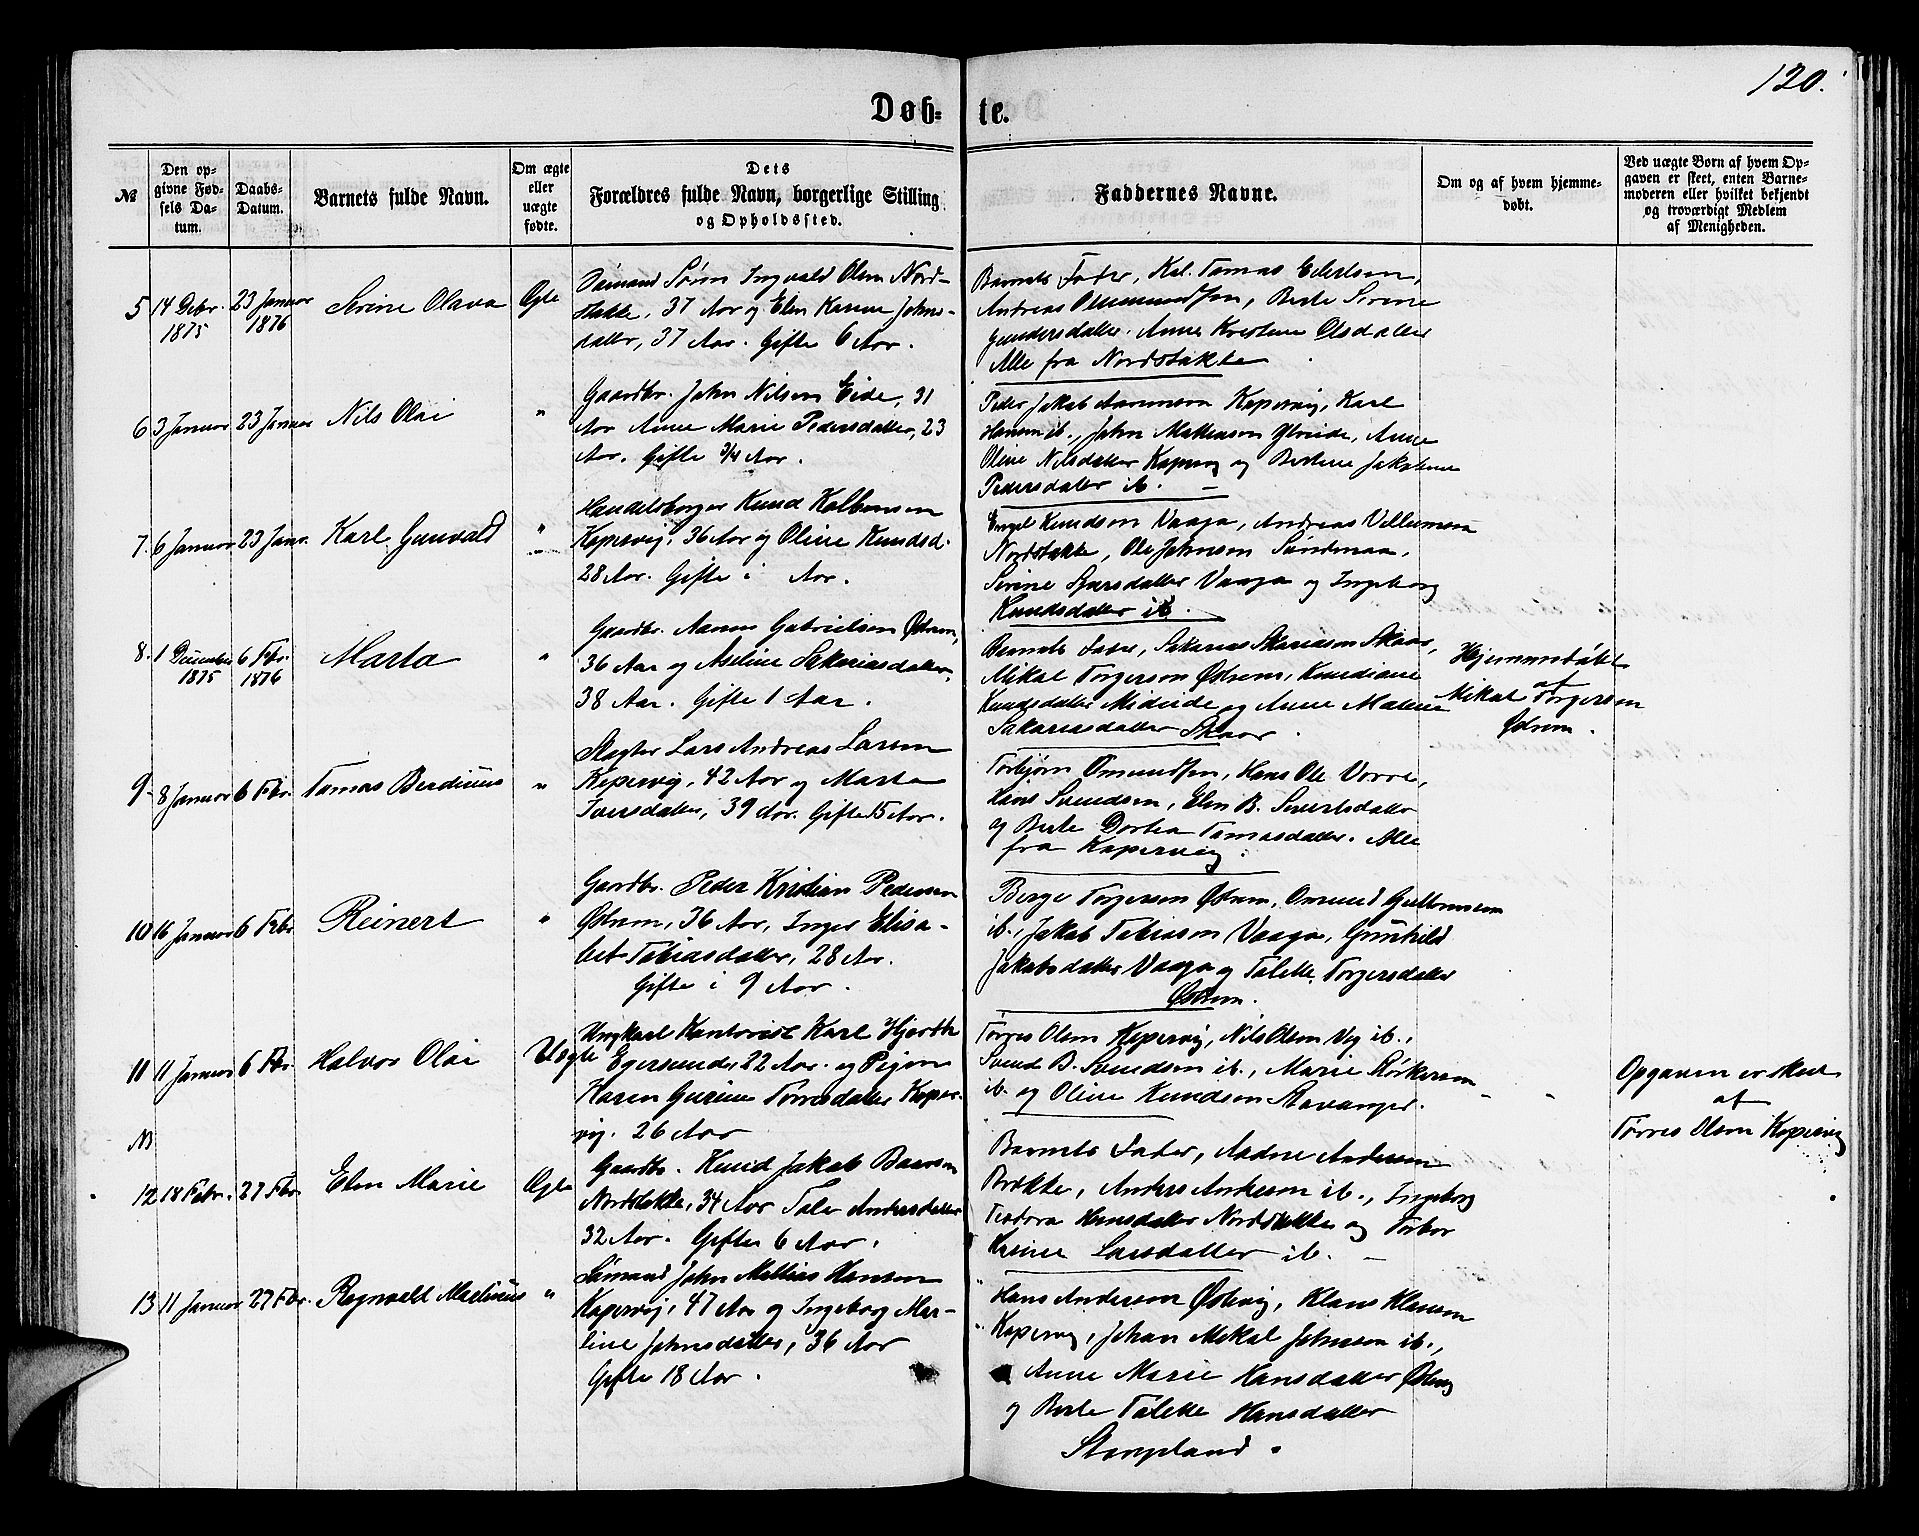 120.
Døb- te.
№
Den opgivne Fødsels Datum.
Daabs-Datum.
Barnets fulde Navn.
Om ægte eller uægte fødte.
Dets Forældres fulde Navn, borgerlige Stilling og Opholdssted.
Faddernes Navne.
Om og af hvem hjemmedøbt.
Ved uægte Børn af hvem Opgaven er skeet, enten Barnemoderen eller hvilket bekjendt og troværdigt Medlem af Menigheden.
5 14 Debr. 1875 23 Januar 1876 Serine Olava Ægte
Sømand Søren Ingvald Olsen Nord-
stokke, 37 Aar og Elen Karine Johns-
datter, 37 Aar. Gifte 6 Aar.
Barnets Fader, Tomas Eilertsen,
Andreas Ommundsen, Berte Serine
Gundersdatter, Anne Kristine Olsdatter
Alle fra Nordstokke
6 3 Januar 23 Januar Nils Olai "
Gaardbr. John Nilsen Eide, 31
Aar Anne Marie Pedersdatter, 23
Aar. Gifte 3/4 Aar.
Peder Jakob Aanensen Kopervig, Karl
Hansen ib., John Mathiasen, Anne
Oline Nilsdatter Kopervig og Bertine Jakobine
Pedersdatter ib.
7 6 Januar 23 Janr. Karl Gunvald "
Handelsborger Knud Kolbensen
Kopervig, 36 Aar og Oline Knudsd.
28 Aar. Gifte i Aar.
Engel Knudsen Vaaga, Andreas Villumsen
Nordstokke, Ole Johnsen Sund,
Serine Larsdatter Vaaga og Ingeborg
Knudsdatter ib.
8. 1 December 1875 6 Febr. 1876 Marta "
Gaardbr. Aanen Gabrielsen Østrem,
36 Aar og Aseline Sakariasdatter,
38 Aar. Gifte 1 Aar.
Barnets Fader, Sakarias Skariasen Skaar,
Mikal Torgersen Østrem, Knudiane
Knudsdatter Mideide og Anne Malene
Sakariasdatter Skaar.
Hjemmedøbt
af
Mikal Torgersen
Østrem.
9 8 Januar 6 Fbr. Tomas Berdinus "
Slagter Lars Andreas Larsen
Kopervig, 42 Aar og Marta
Iversdatter, 39 Aar. Gifte 15 Aar.
Torbjørn Omundsen, Hans Ole Vorre,
Hans Svendsen, Elen B. Sivertsdatter
og Berte Dortea Tomasdatter. Alle
fra Kopervig.
10 16 Januar 6 Febr Reinert "
Gaardbr. Peder Kristian Pedersen
Østrem, 36 Aar, Inger Elisa-
bet Tobiasdatter, 28 Aar.
Gifte i 9 Aar.
Børge Torgersen Østrem, Omund Gulbrunsen
ib., Jakob Tobiasen Vaaga, Gunhild
Jakobsdatter Vaaga og Talette Torgersdatter
Østrem.
11 11 Januar 6 Fbr. Halvor Olai Uægte
Ungkarl Kontorist Karl Hjorth
Egersund, 22 Aar. og Pigen
Karen Gurine Torresdatter Koper-
vig. 26 Aar
Tørres Olsen Kopervig, Nils Olsen Vej ib.,
Svend B. Svendsen ib., Marie
ib. og Oline Knudsen Stavanger.
" "
Opgaven er skeet
af
Tørres Olsen Kopervig
NB
12 18 Febr. 27 Fbr. Elen Marie Ægte
Gaardbr. Knud Jakob Baarsen
Nordstokke, 34 Aar Tale Andersdatter
32 Aar. Gifte 6 Aar.
Barnets Fader, Aadne Andersen
Brekke, Anders Andersen ib., Ingeborg
Teodora Hansdatter Nordstokke og Torbor
Kesine Larsdatter ib.
13 11 Januar 27 Fbr. Regnvald Martinus "
Sømand John Mathias Hansen
Kopervig, 47 Aar og Ingeborg Mar-
tine Johnsdatter, 36 Aar
Gifte 18 Aar.
Hans Andersen Østevig, Klaus Klausen
Kopervig, Johan Mikal Johnsen ib.,
Anne Marie Hansdatter Østevig
og Berte Talette Hansdatter
Stangeland.